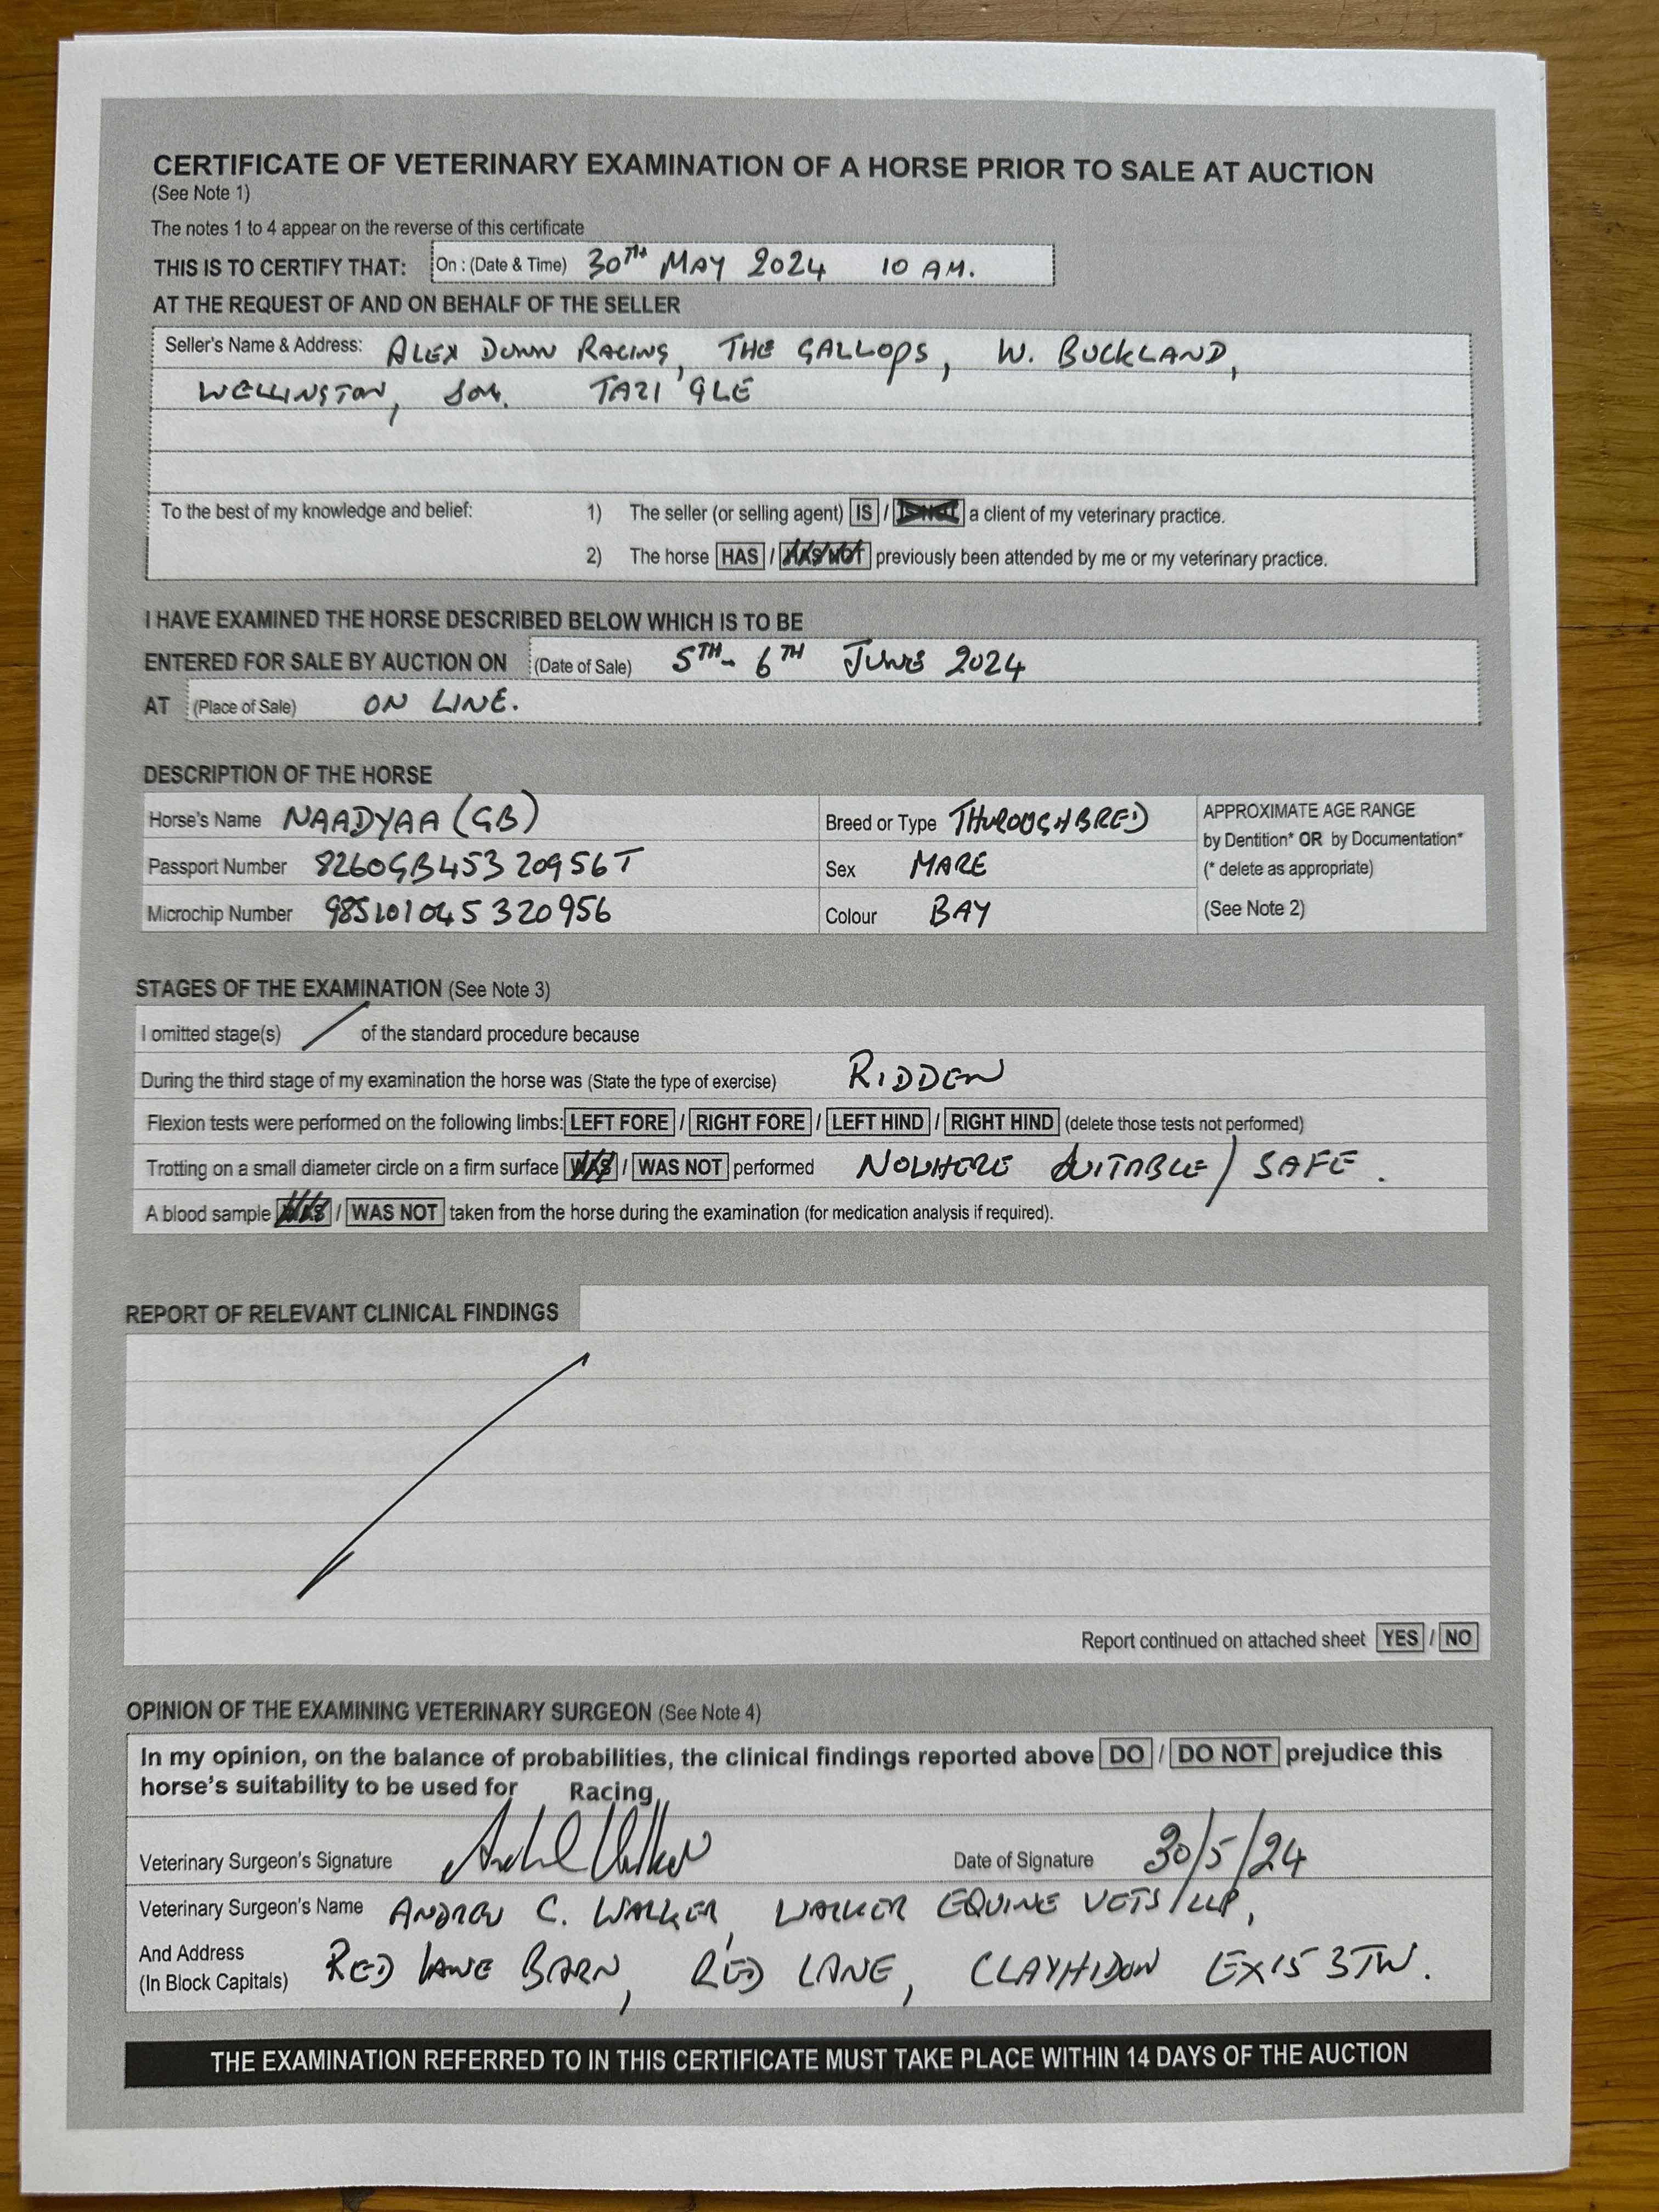 CERTIFICATE OF VETERINARY EXAMINATION OF A HORSE PRIOR TO SALE AT AUCTION
(See Note 1)
The notes 1 to 4 appear on the reverse of this certificate
THIS IS TO CERTIFY THAT: On : (Date & Time) 30TH MAY 2024 10 AM.
AT THE REQUEST OF AND ON BEHALF OF THE SELLER
Seller's Name & Address: ALEX DUNN RACING, THE GALLOPS, W. BUCKLAND,
WELLINGTON, SOM. TA21 9LE
To the best of my knowledge and belief: 1) The seller (or selling agent) IS / IS NOT a client of my veterinary practice.
2) The horse HAS / HAS NOT previously been attended by me or my veterinary practice.
I HAVE EXAMINED THE HORSE DESCRIBED BELOW WHICH IS TO BE
ENTERED FOR SALE BY AUCTION ON (Date of Sale) 5TH- 6TH JUNE 2024
AT (Place of Sale) ON LINE.
DESCRIPTION OF THE HORSE
Horse's Name NAADYAA (GB) Breed or Type THOROUGHBRED APPROXIMATE AGE RANGE
by Dentition* OR by Documentation*
Passport Number 8260GB45320956T Sex MARE (* delete as appropriate)
Microchip Number 985101045320956 Colour BAY (See Note 2)
STAGES OF THE EXAMINATION (See Note 3)
I omitted stage(s) / of the standard procedure because
During the third stage of my examination the horse was (State the type of exercise) RIDDEN
Flexion tests were performed on the following limbs: LEFT FORE / RIGHT FORE / LEFT HIND / RIGHT HIND (delete those tests not performed)
Trotting on a small diameter circle on a firm surface WAS / WAS NOT performed NOWHERE SUITABLE / SAFE.
A blood sample WAS / WAS NOT taken from the horse during the examination (for medication analysis if required).
REPORT OF RELEVANT CLINICAL FINDINGS
Report continued on attached sheet YES / NO
OPINION OF THE EXAMINING VETERINARY SURGEON (See Note 4)
In my opinion, on the balance of probabilities, the clinical findings reported above DO / DO NOT prejudice this
horse's suitability to be used for Racing
Veterinary Surgeon's Signature Date of Signature 30/5/24
Veterinary Surgeon's Name ANDREW C. WALKER, WALKER EQUINE VETS LLP,
And Address
(In Block Capitals) RED LANE BARN, RED LANE, CLAYHIDON EX15 3TW.
THE EXAMINATION REFERRED TO IN THIS CERTIFICATE MUST TAKE PLACE WITHIN 14 DAYS OF THE AUCTION